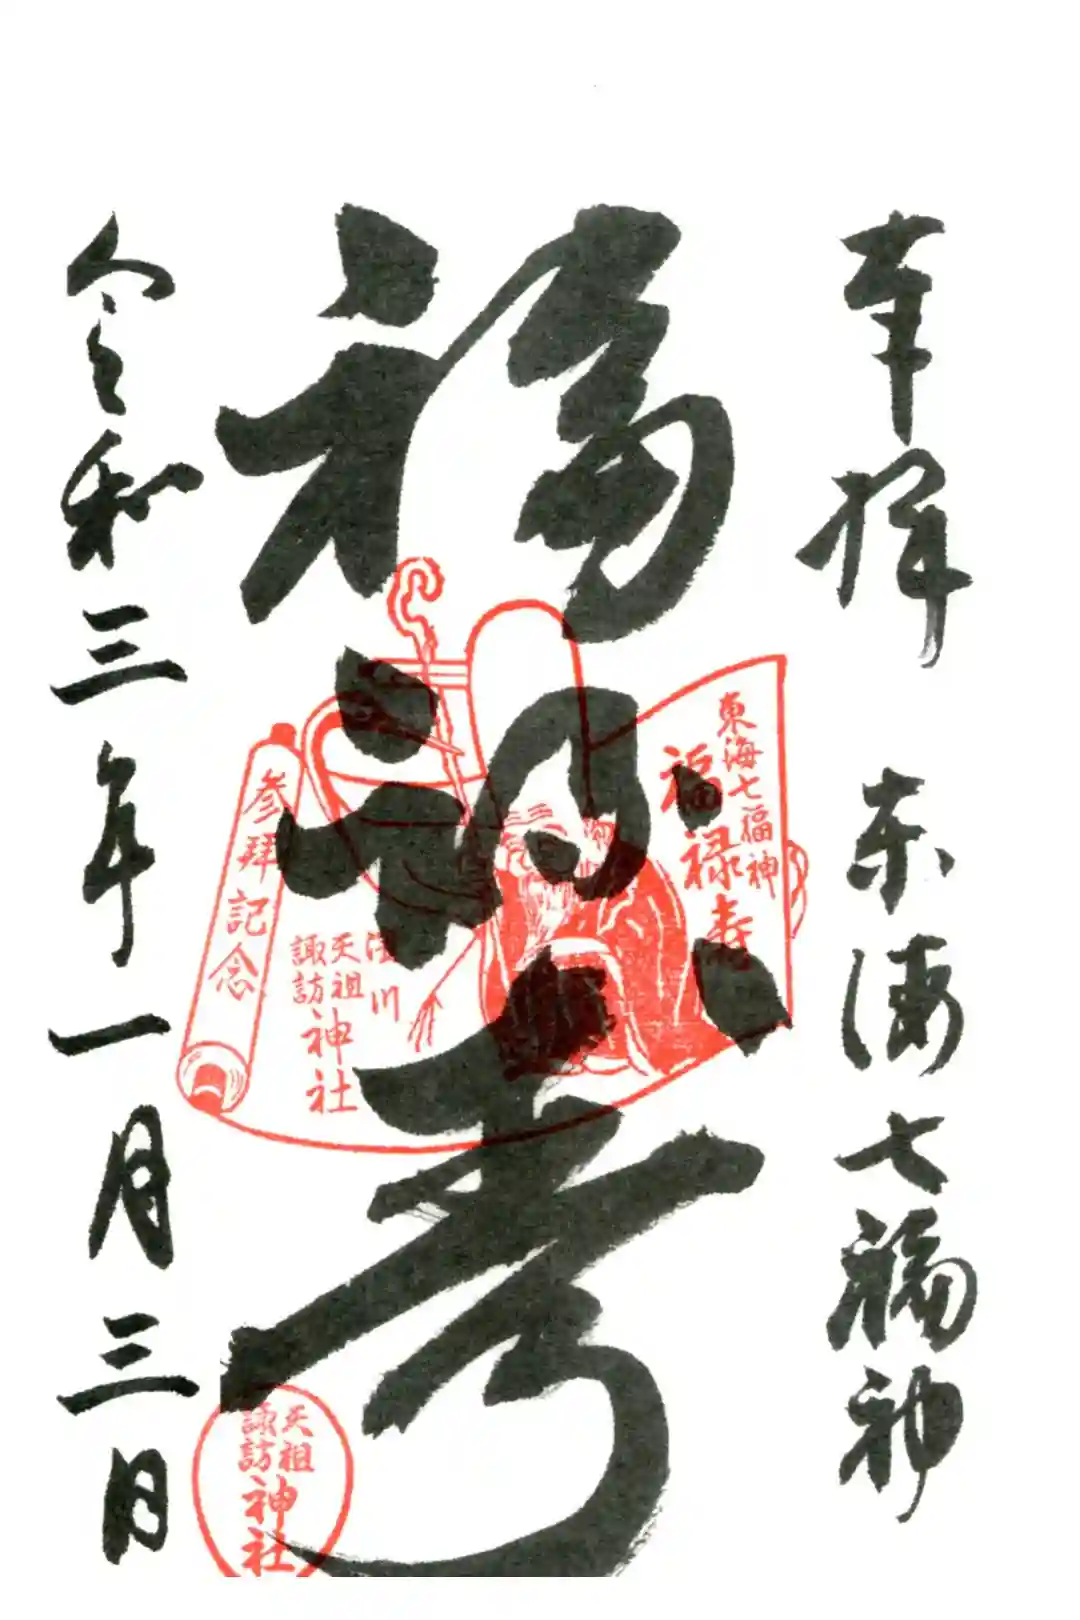 奉拝 東海七福神
福禄寿
令和三年一月三日
東海七福神
福禄寿
参拝記念
天祖
諏訪
神社
天祖
諏訪
神社